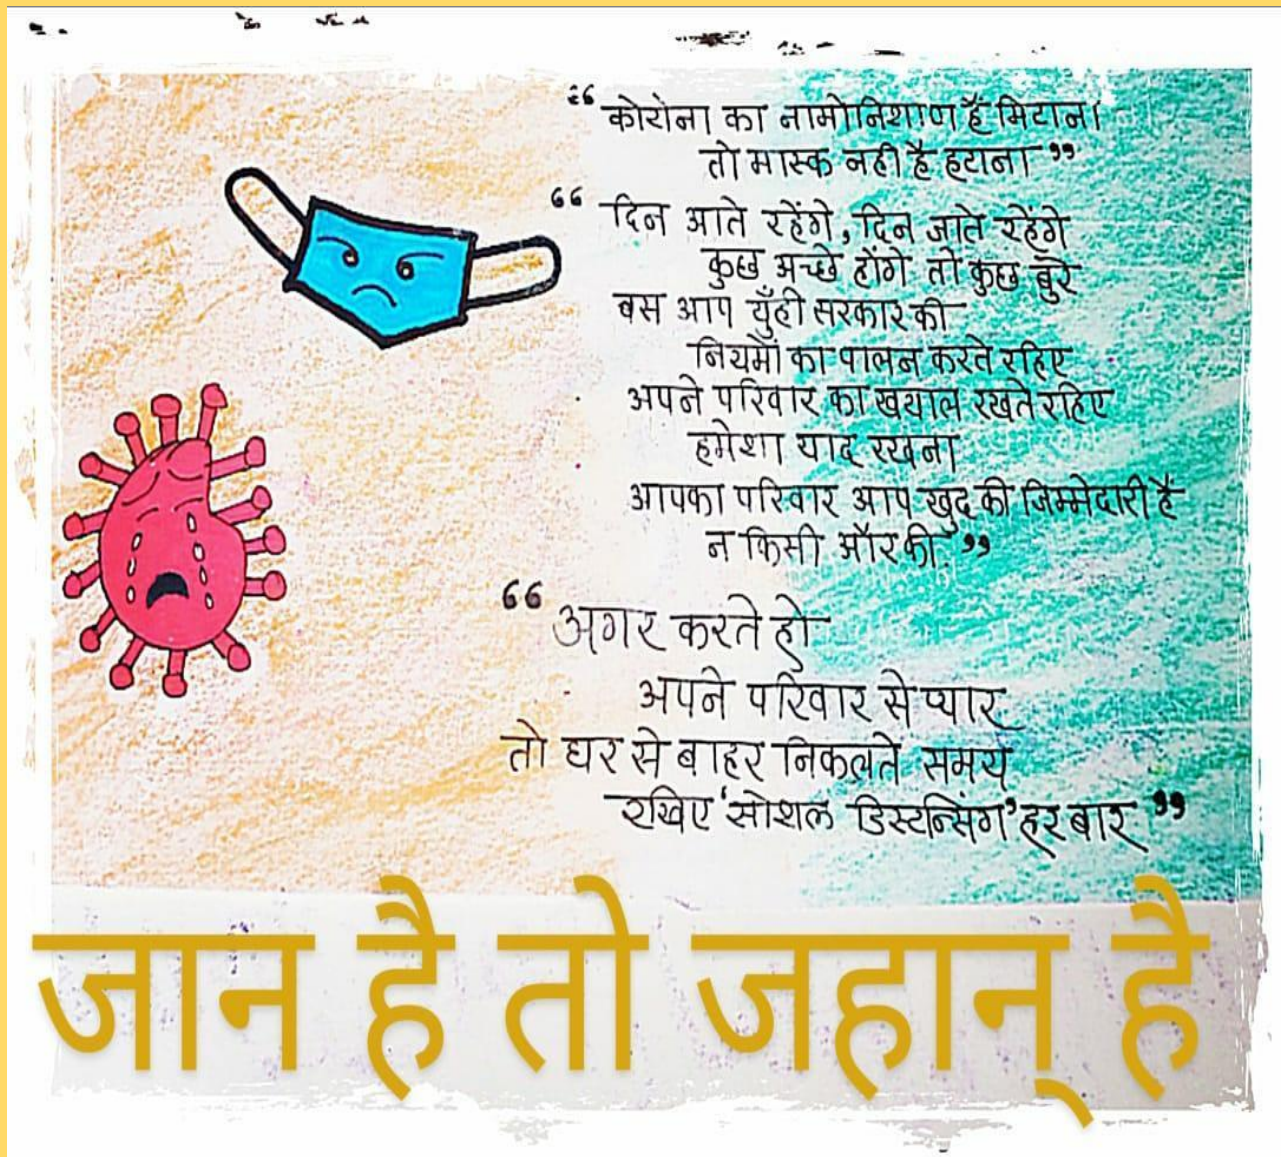 “ कोरोना का नामोनिशाण है मिटाना
तो मास्क नही है हटाना ”
“ दिन आते रहेंगे, दिन जाते रहेंगे
कुछ अच्छे होंगे तो कुछ बुरे
बस आप युँही सरकार की
नियमों का पालन करते रहिए
अपने परिवार का खयाल रखते रहिए
हमेशा याद रखना
आपका परिवार आप खुद की जिम्मेदारी है
न किसी और की. ”
“ अगर करते हो
अपने परिवार से प्यार
तो घर से बाहर निकलते समय
रखिए ‘सोशल डिस्टन्सिंग’ हर बार ”
जान है तो जहान् है